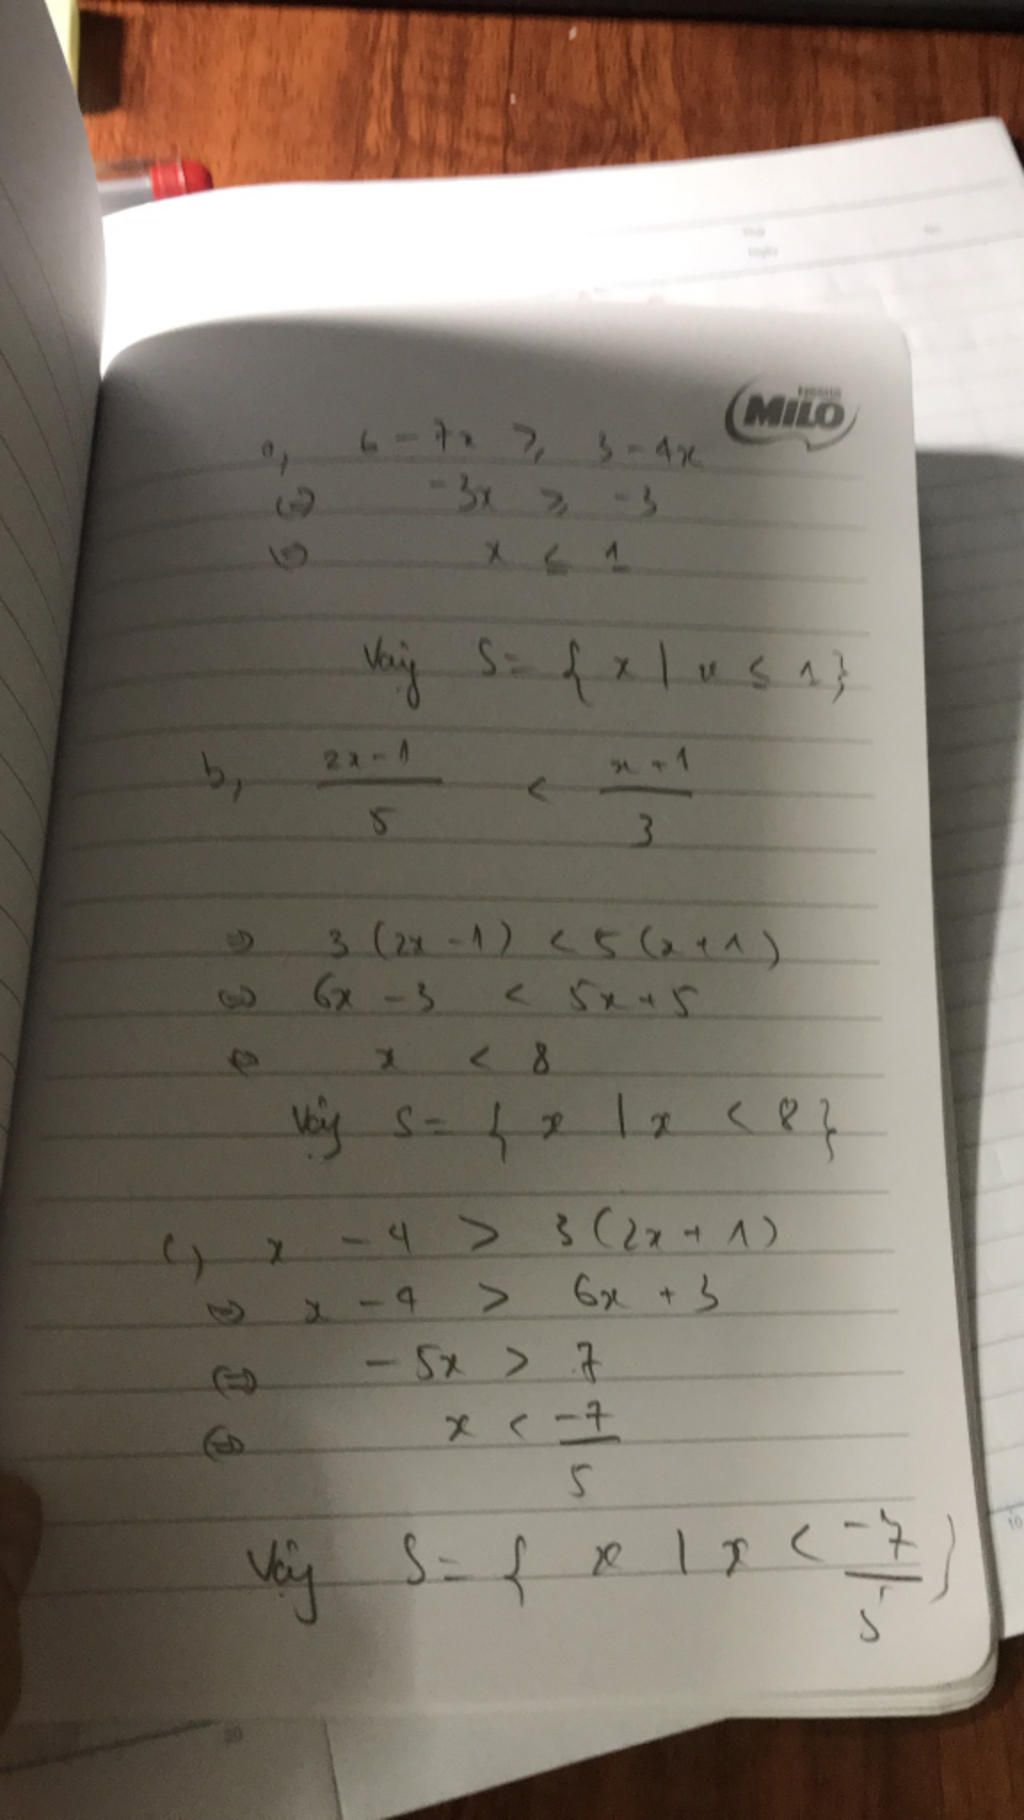 MILO
a, 6 - 7x ≥ 3 - 4x
⇔ -3x ≥ -3
⇔ x ≤ 1
Vậy S = { x | x ≤ 1 }
b, (2x - 1)/5 < (x + 1)/3
⇔ 3(2x - 1) < 5(x + 1)
⇔ 6x - 3 < 5x + 5
⇔ x < 8
Vậy S = { x | x < 8 }
c, x - 4 > 3(2x + 1)
⇔ x - 4 > 6x + 3
⇔ -5x > 7
⇔ x < -7/5
Vậy S = { x | x < -7/5 }
10
20